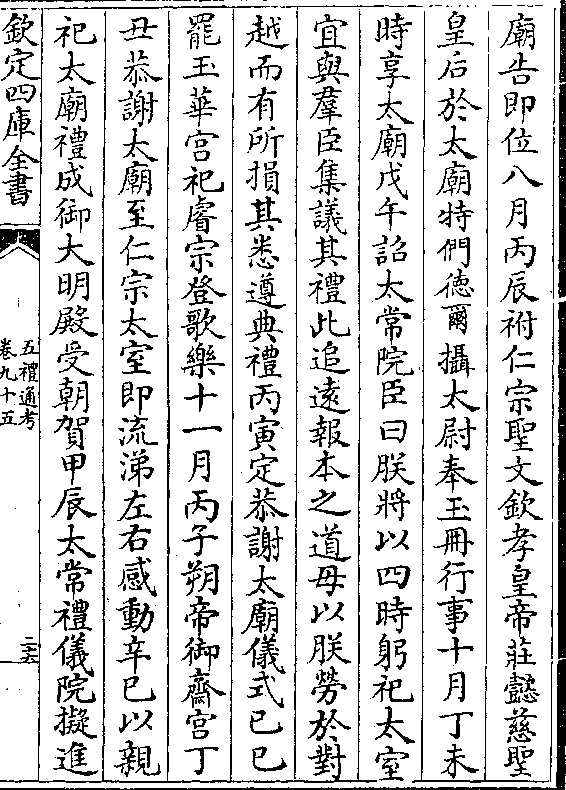 廟告即位八月丙辰祔仁宗聖文欽孝皇帝莊懿慈聖
皇后於太廟特們徳爾攝太尉奉玉冊行事十月丁未
時享太廟戊午詔太常院臣曰朕將以四時躬祀太室
宜與羣臣集議其禮此追遠報本之道毋以朕勞於對
越而有所損其悉遵典禮丙寅定恭謝太廟儀式己巳
罷玉華宮祀睿宗登歌樂十一月丙子朔帝御齋宮丁
丑恭謝太廟至仁宗太室即流涕左右感動辛巳以親
祀太廟禮成御大明殿受朝賀甲辰太常禮儀院擬進
欽定四庫全書
五禮通考
卷九十五